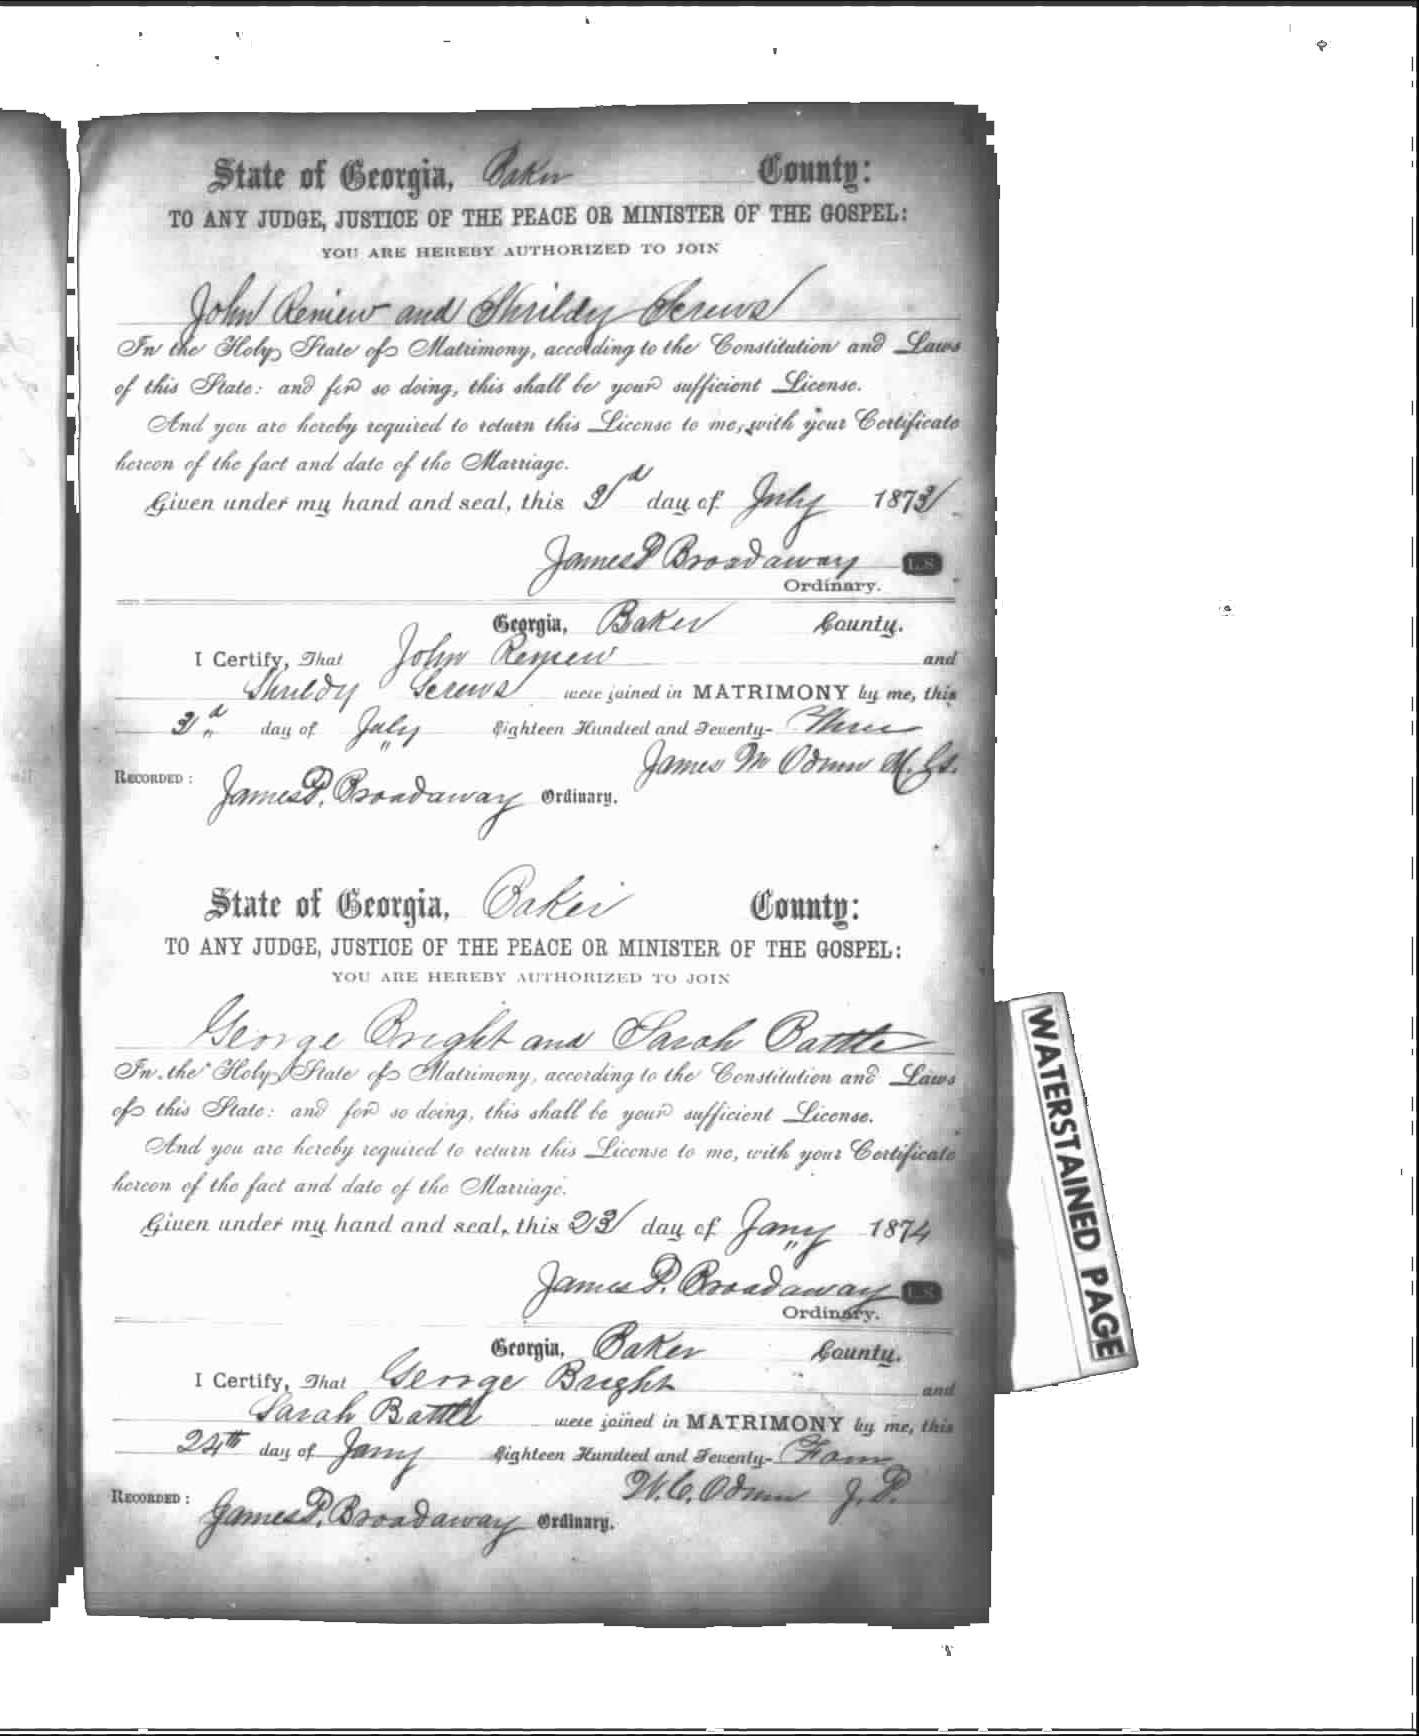 State of Georgia, Baker County:
TO ANY JUDGE, JUSTICE OF THE PEACE OR MINISTER OF THE GOSPEL:
YOU ARE HEREBY AUTHORIZED TO JOIN
John Reniew and Shrildy Screws
In the Holy State of Matrimony, according to the Constitution and Laws
of this State: and for so doing, this shall be your sufficient License.
And you are hereby required to return this License to me, with your Certificate
hereon of the fact and date of the Marriage.
Given under my hand and seal, this 3d day of July 1873
James P Broadaway L.S.
Ordinary.
Georgia, Baker County.
I Certify, That John Reniew and
Shrildy Screws were joined in MATRIMONY by me, this
3d day of July Eighteen Hundred and Seventy-Three
James M Odum M.G.
RECORDED: James P. Broadaway Ordinary.
State of Georgia, Baker County:
TO ANY JUDGE, JUSTICE OF THE PEACE OR MINISTER OF THE GOSPEL:
YOU ARE HEREBY AUTHORIZED TO JOIN
George Bright and Sarah Battle
In the Holy State of Matrimony, according to the Constitution and Laws
of this State: and for so doing, this shall be your sufficient License.
And you are hereby required to return this License to me, with your Certificate
hereon of the fact and date of the Marriage.
Given under my hand and seal, this 23 day of Jany 1874
James P. Broadaway L.S.
Ordinary.
Georgia, Baker County.
I Certify, That George Bright and
Sarah Battle were joined in MATRIMONY by me, this
24th day of Jany Eighteen Hundred and Seventy-Four
W. C. Odum J. P.
RECORDED: James P. Broadaway Ordinary.
WATERSTAINED PAGE